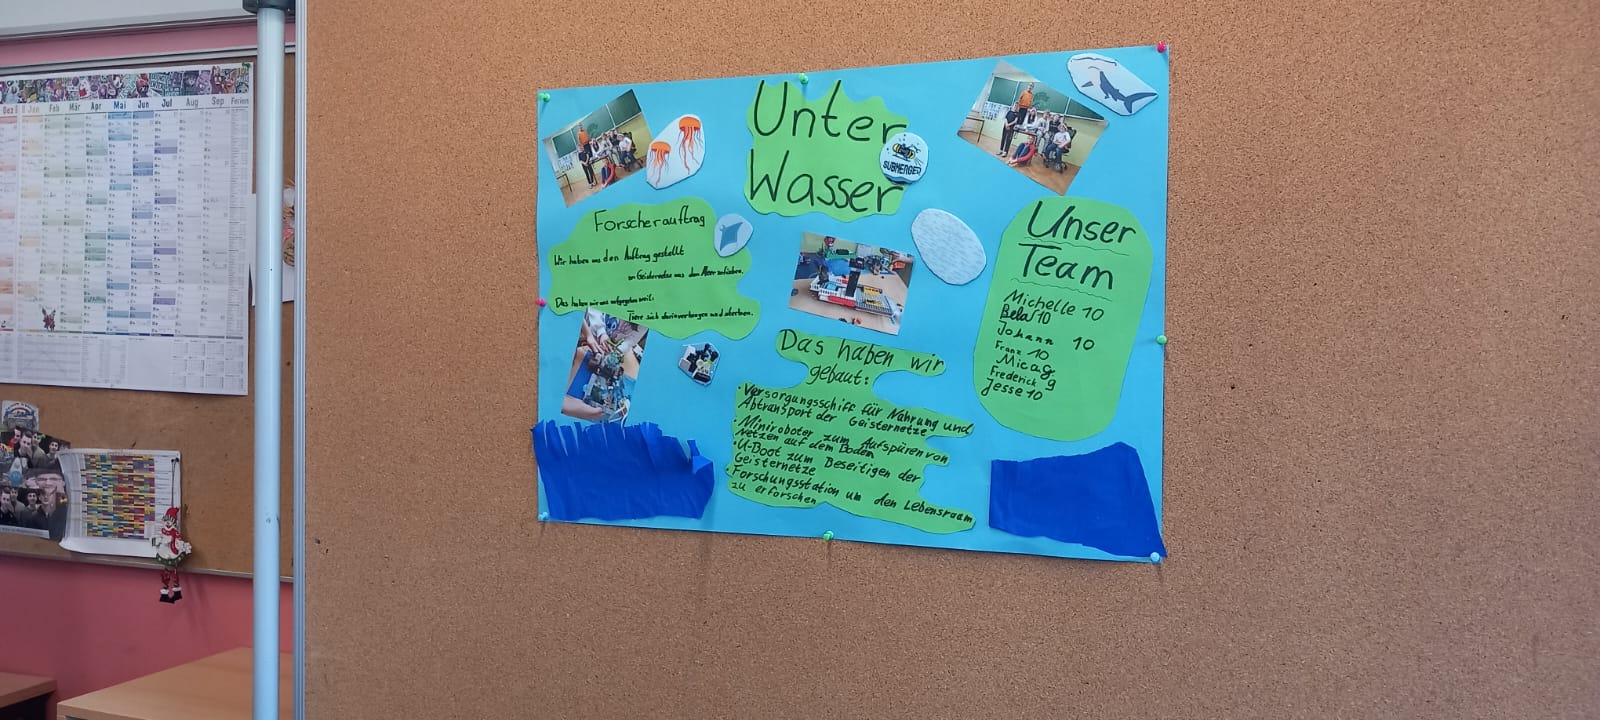 Unter
Wasser
SUBMERGED
Forscherauftrag
Wir haben uns den Auftrag gestellt
Geisternetze aus dem Meer zu fischen.
Das haben wir uns weil:
Tiere sich darin verfangen und sterben.
Das haben wir
gebaut:
• Versorgungsschiff für Nahrung und
Abtransport der Geisternetze
• Miniroboter zum Aufspüren von
Netzen auf dem Boden
• U-Boot zum Beseitigen der
Geisternetze
• Forschungsstation um den Lebensraum
zu erforschen
Unser
Team
Michelle 10
Bela 10
Johann 10
Franz 10
Mica 9
Frederick 9
Jesse 10
Dez Jan Feb Mär Apr Mai Jun Jul Aug Sep Ferien